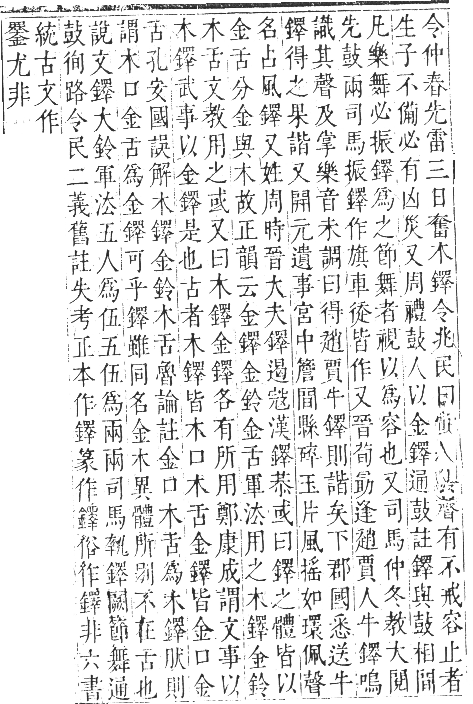 令仲春先雷三日奮木鐸令兆民曰有不戒容止者
生子不備必有凶災又周禮鼓人以金鐸通鼓註鐸與鼓相間
凡樂舞必振鐸爲之節舞者視以爲容也又司馬仲冬教大閱
先鼓兩司馬振鐸作旗車徒皆作又晉荀勗逢趙賈人牛鐸鳴
識其聲及掌樂音未調曰得趙賈牛鐸則諧矣下郡國悉送牛
鐸得之果諧又開元遺事宮中簷間縣碎玉片風搖如環佩聲
名占風鐸又姓周時晉大夫鐸遏寇漢鐸恭或曰鐸之體皆以
金舌分金與木故正韻云金鐸金鈴金舌軍法用之木鐸金鈴
木舌文教用之或又曰木鐸金鐸各有所用鄭康成謂文事以
木鐸武事以金鐸是也古者木鐸皆木口木舌金鐸皆金口金
舌孔安國誤解木鐸金鈴木舌魯論註金口木舌爲木鐸肰則
謂木口金舌爲金鐸可乎鐸雖同名金木異體所别不在舌也
說文鐸大鈴軍法五人爲伍五伍爲兩兩司馬執鐸闕節舞通
鼓徇路令民二義舊註失考正本作鐸篆作鐸俗作鐸非六書
統古文作
非